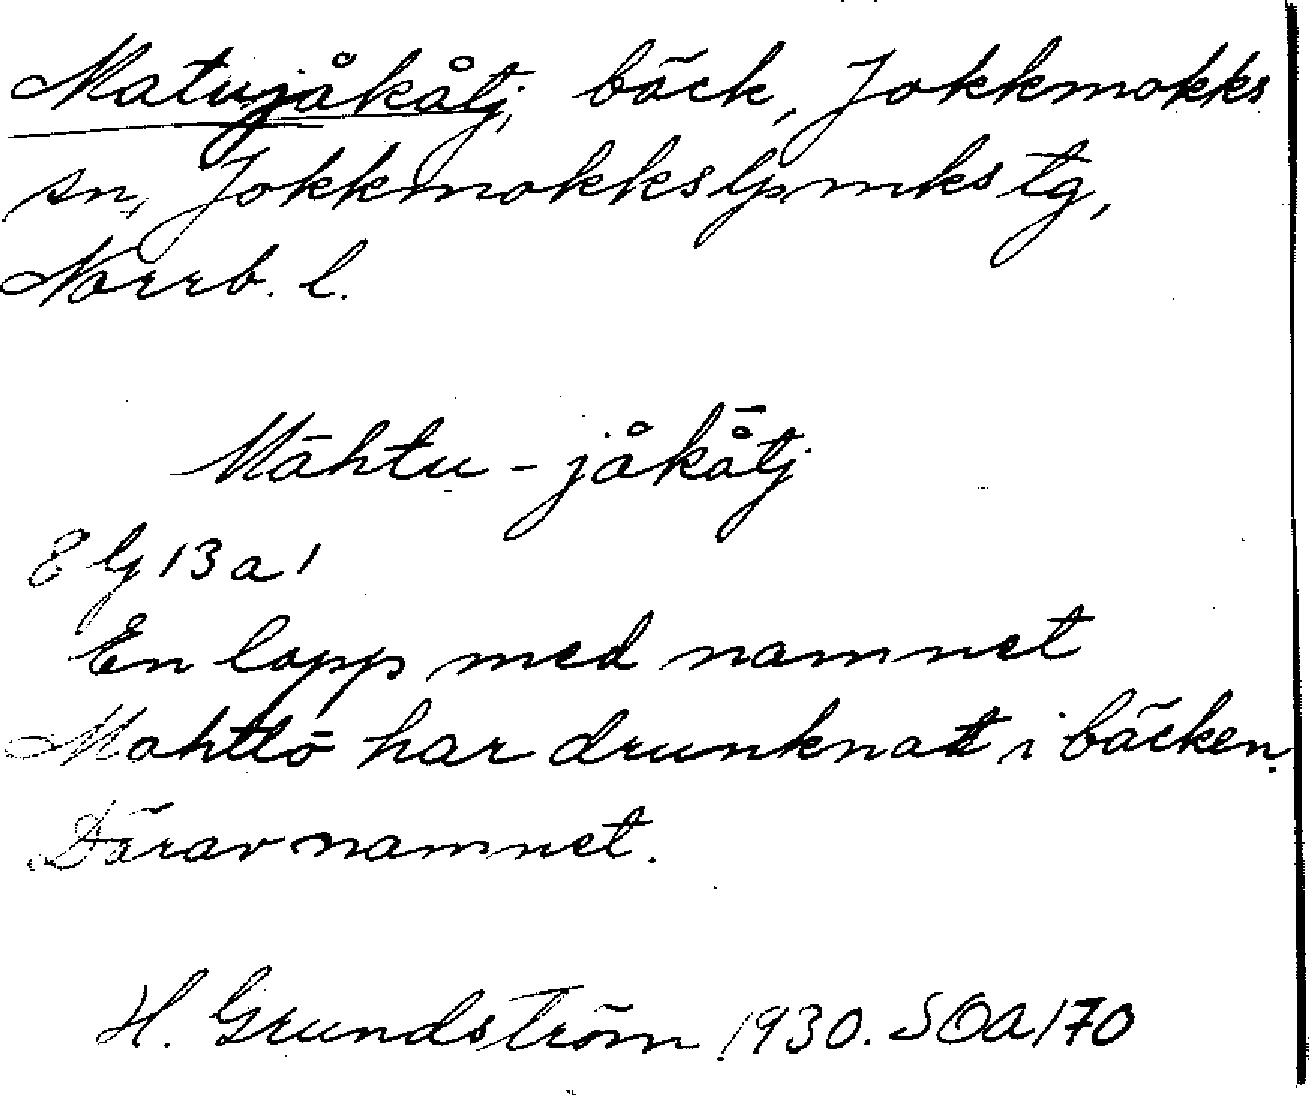 Matujåkåtj, bäck, Jokkmokks
sn, Jokkmokks lpmks tg,
Norrb. l.
Māhtu-jåkå̄tj
8 lj 13 a 1
En lapp med namnet
Mahttō har drunknat i bäcken.
Därav namnet.
H. Grundström 1930. SOA 170